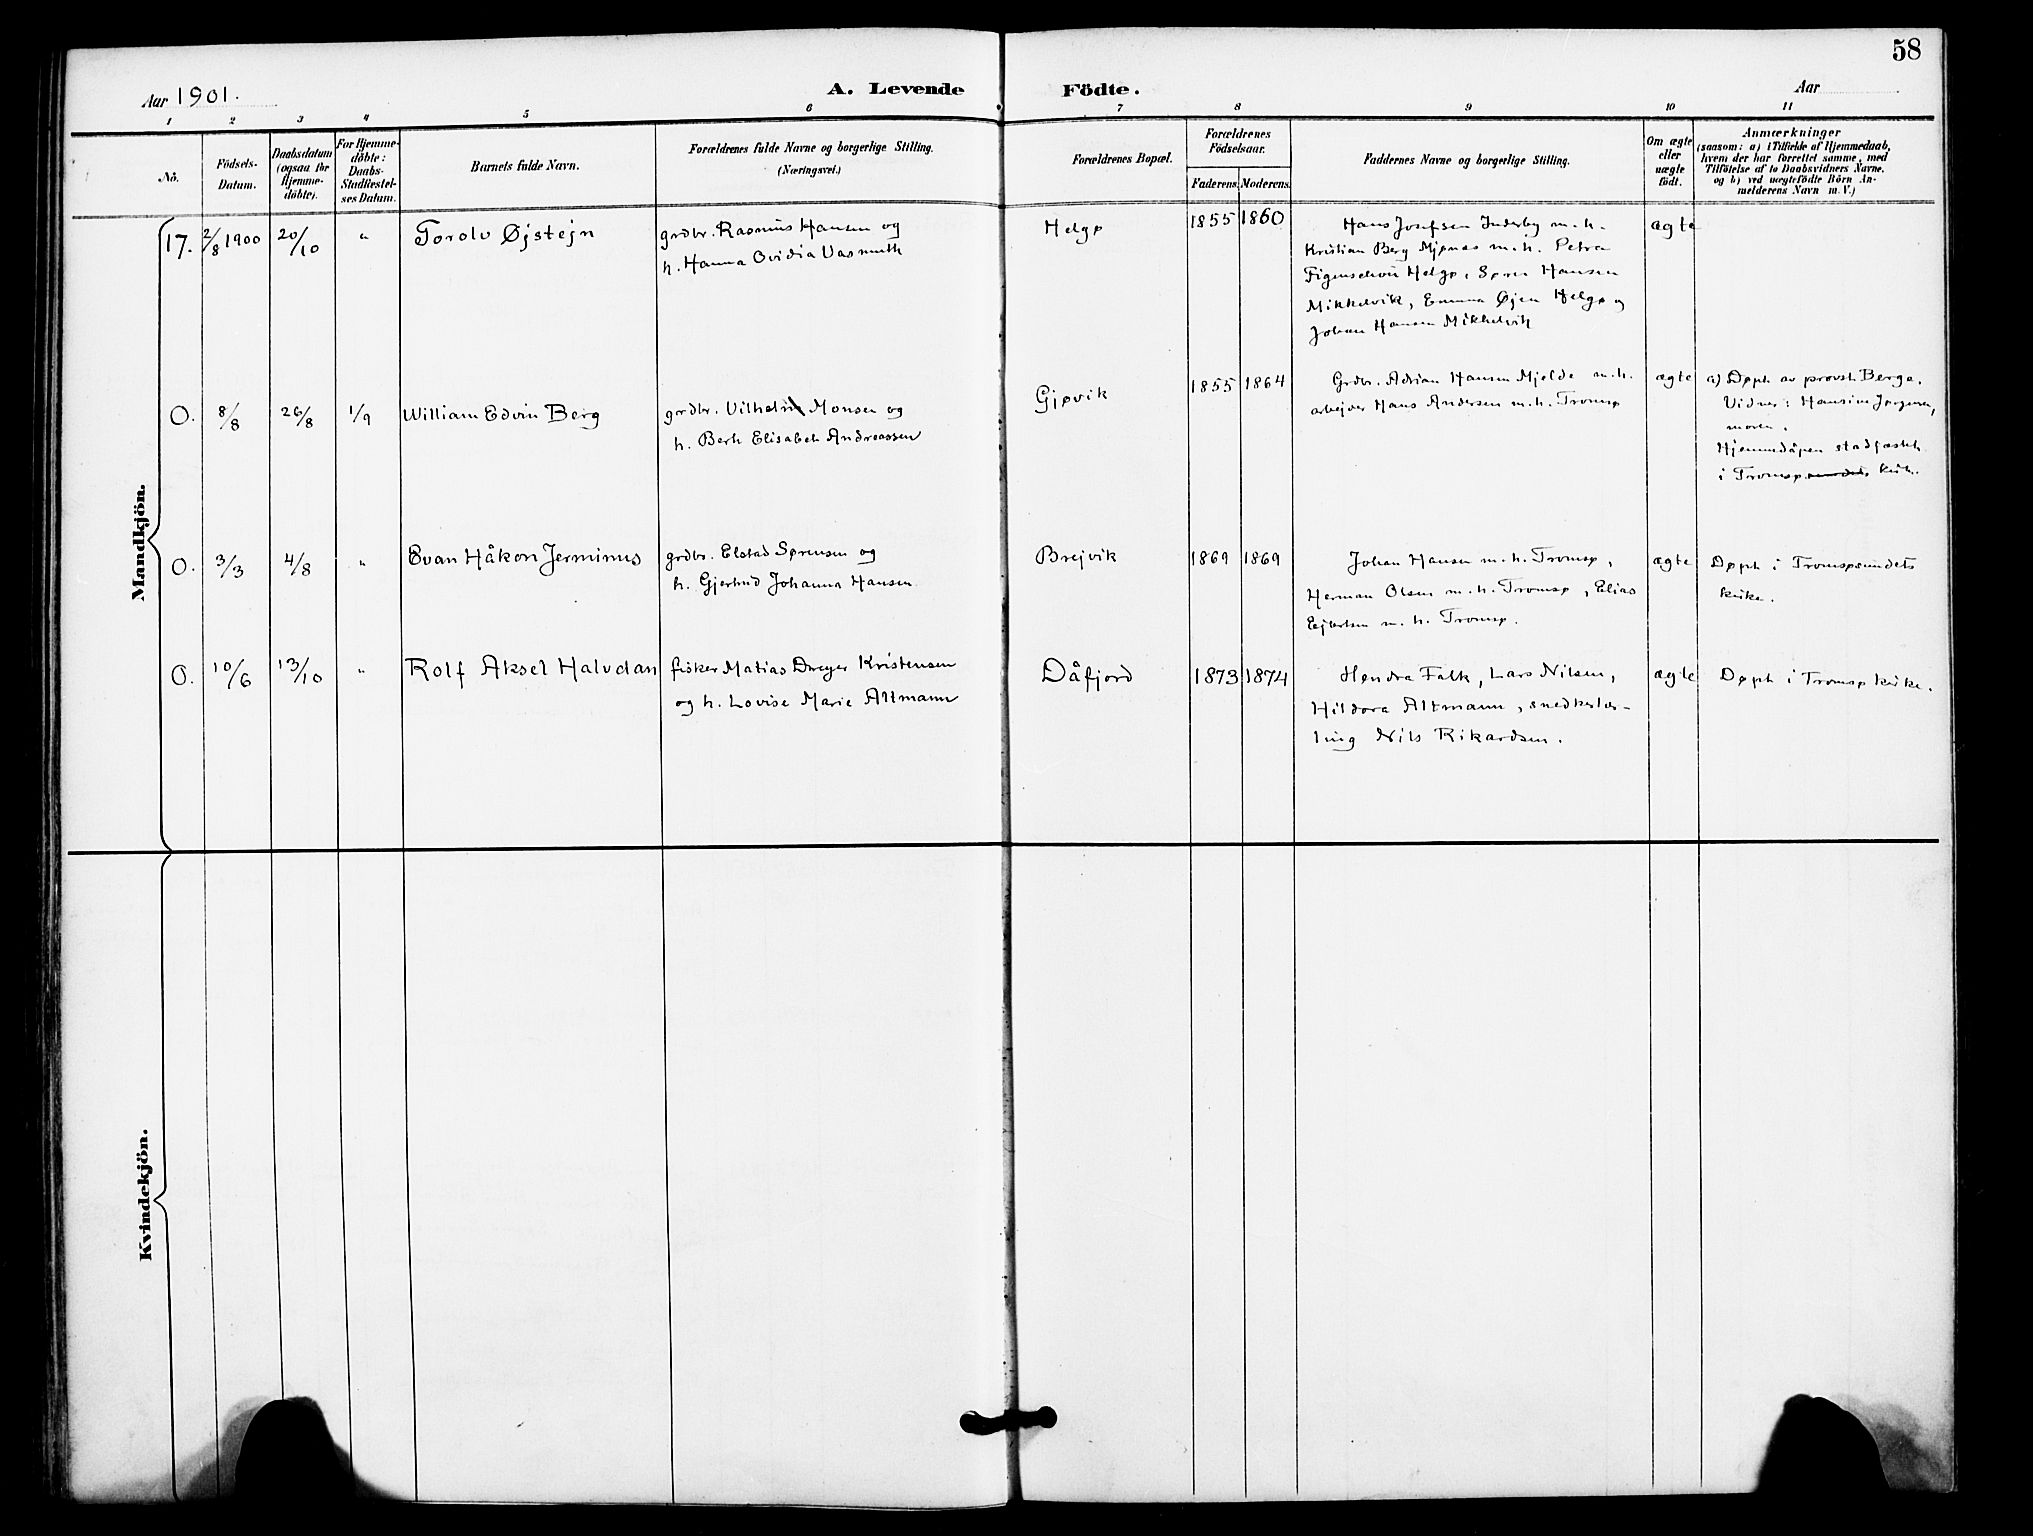 58
Aar 1901.
A. Levende Födte.
Aar
1 2 3 4 5 6 7 8 9 10 11
No.
Födsels-
Datum.
Daabsdatum
(ogsaa for
Hjemme-
döbte).
For Hjemme-
döbte:
Daabs-
Stadfæstel-
ses Datum.
Barnets fulde Navn.
Forældrenes fulde Navne og borgerlige Stilling.
(Næringsvei.)
Forældrenes Bopæl.
Forældrenes
Födselsaar.
Faderens. Moderens.
Faddernes Navne og borgerlige Stilling.
Om ægte
eller
uægte
födt.
Anmærkninger
(saasom: a) i Tilfælde af Hjemmedaab,
hvem der har forrettet samme, med
Tilföielse af to Daabsvidners Navne,
og b) ved uægtefödte Börn An-
melderens Navn m. V.)
Mandkjön.
17. 2/8 1900 20/10 " Torolv Øjstejn
grdbr. Rasmus Hansen og
h. Hanna Ovidia Vasmuth
Helgø
1855 1860
Hans Josefsen Inderby m. h.
Kristian Berg Mjønes m. h. Petra
Figenschou Helgø, Søren Hansen
Mikkelvik, Emma Øjen Helgø og
Johan Hansen Mikkelvik
ægte
O. 8/8 26/8 1/9 William Edvin Berg
grdbr. Vilhelm Monsen og
h. Berh Elisabeth Andreassen
Gjøvik
1855 1864
Grdbr. Adrian Hansen Mjelde m. h.
arbejder Hans Andersen m. h. Tromsø
ægte
a) Døpt av provst Berge.
Vidner: Hansine Jørgensen,
moren.
Hjemmedåpen stadfæstet
i Tromsøsundets kirke.
O. 3/3 4/8 " Evan Håkon Jerminus
grdbr. Elstad Sørensen og
h. Gjertrud Johanna Hansen
Brejvik
1869 1869
Johan Hansen m. h. Tromsø,
Herman Olsen m. h. Tromsø, Elias
Ejlertsen m. h. Tromsø.
ægte
Døpt i Tromsøsundets
kirke.
O. 10/6 13/10 " Rolf Aksel Halvdan
fisker Matias Dreyer Kristensen
og h. Lovise Marie Altmann
Dåfjord
1873 1874
Hendra Falk, Lars Nilsen,
Hildora Altmann, snedkerlær-
ling Nils Rikardsen.
ægte
Døpt i Tromsø kirke.
Kvindekjön.